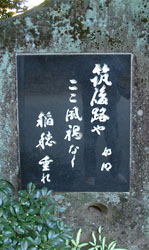 筑後路や
ここ風禍なく
稲穂垂れ